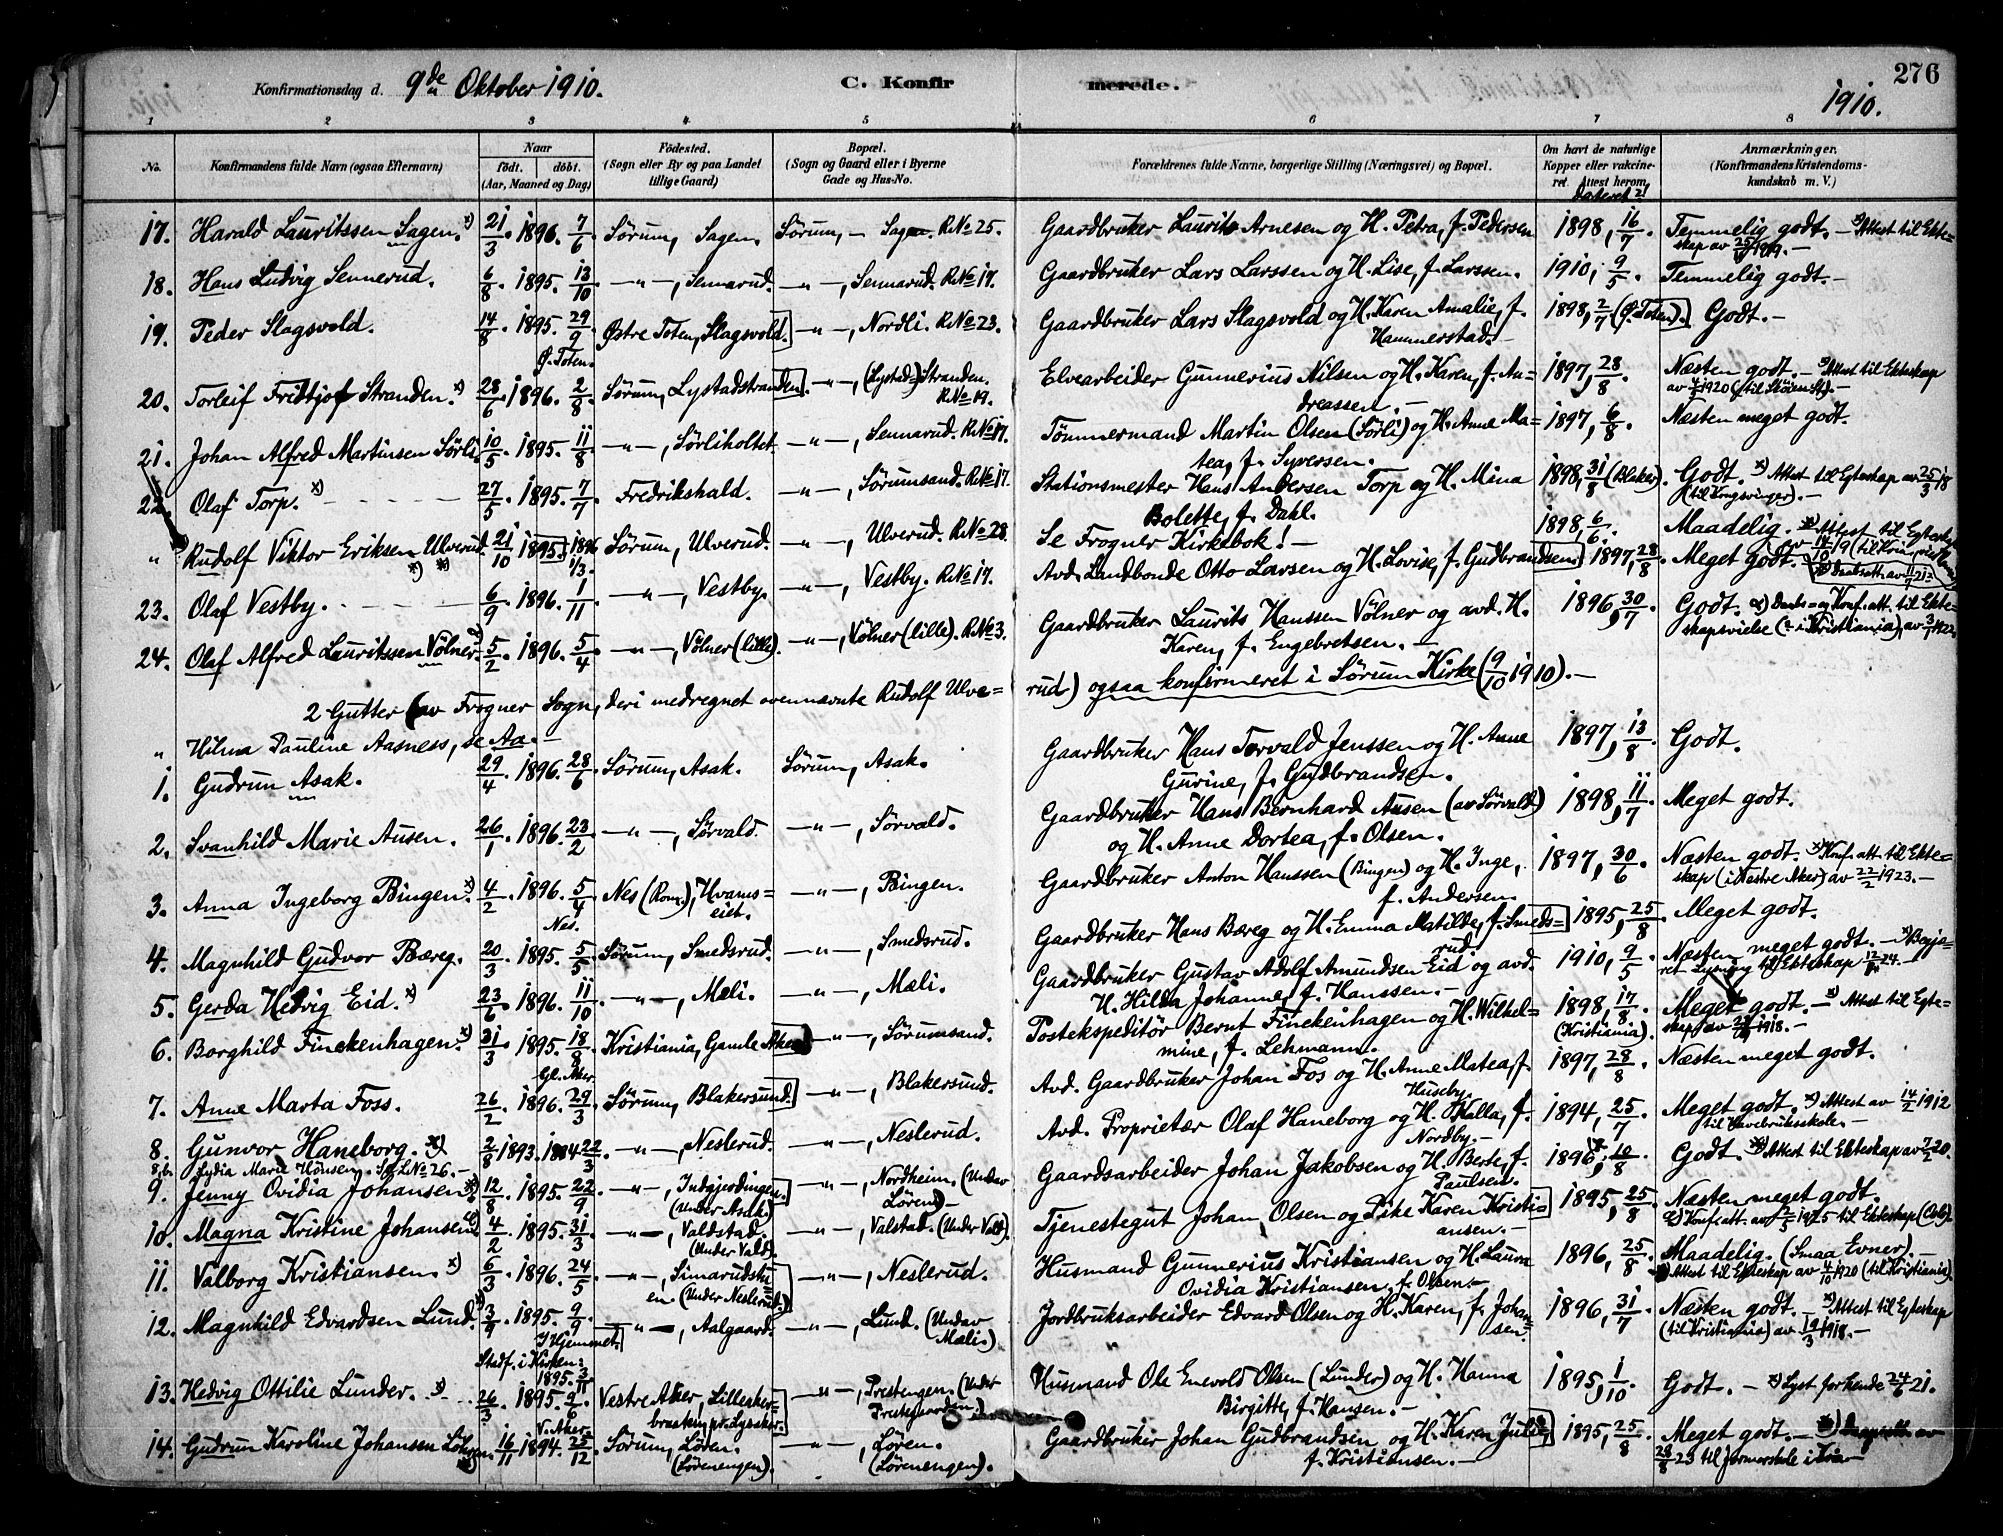 276
Konfirmationsdag d. 9de Oktober 1910. C. Konfir merede. 1910.
1 2 3 4 5 6 7 8
No. Konfirmandens fulde Navn (ogsaa Efternavn) Naar født. døbt. (Aar, Maaned og Dag) Fødested. (Sogn eller By og paa Landet tillige Gaard) Bopæl. (Sogn og Gaard eller i Byerne Gade og Hus-No. Forældrenes fulde Navne, borgerlige Stilling (Næringsvei) og Bopæl. Om havt de naturlige Kopper eller vakcineret. Attest herom, dateret? Anmærkninger. (Konfirmandens Kristendomskundskab m. V.)
17. Harald Lauritssen Sagen. x) 21/3. 1896. 7/6 Sørum, Sagen. Sørum, – Sagen. R.No 25. Gaardbruker Laurits Arnesen og H. Petra, f. Pedersen 1898, 16/7. Temmelig godt. – x) Attest til Ekte=
skap av 25/ 1919. –
18. Hans Ludvig Sennerud. 6/8 1895. 13/10 –"–, Sennarud. –"–, Sennarud. R.No 17. Gaardbruker Lars Larssen og H. Lise, f. Larssen. 1910, 9/5 Temmelig godt. –
19. Peder Slagsvold. 14/8. 1895. 29/9 Østre Toten, Slagsvold. –"–, Nordli. R.No 23. Gaardbruker Lars Slagsvold og H. Karen Amalie, f. 1898, 2/7 (Ø. Toten). Godt. –
Ø. Toten. Hammerstad. –
20. Torleif Fridtjof Stranden. x) 28/6. 1896. 2/8. Sørum, Lystadstranden. –"–, (Lystad=) Stranden. R.No 19. Elvearbeider Gunnerius Nilsen og H. Karen, f. An= 1897, 28/8. Næsten godt. – x) Attest til Ekteskap
dreassen. – av 1920 (til Skøien St). –
21. Johan Alfred Martinsen Sørli. 10/5 1895. 11/8. –"–, Sørliholtet. –"–, Sennarud. R.No 17. Tømmermand Martin Olsen (Sørli) og H. Anne Ma= 1897, 6/8. Næsten meget godt.
tea, f. Syversen.
22. Olaf Torp. x) – – – 27/5. 1895. 7/7 Fredrikshald. –"–, Sørumsand. R.No 17. Stationsmester Hans Andersen Torp og H. Mina 1898, 31/8 (Blaker). Godt. x) Attest til Egteskap av 25/3 18
Bolette, f. Dahl. (til Kongsvinger). –
" Rudolf Viktor Eriksen Ulverud. x) x) 21/10 1895. 1896 1/3. Sørum, Ulverud. –"–, Ulverud. R.No 28. Se Frogner Kirkebok! – 1898, 6/6. Maadelig. x) Attest til Egteskap
av 14/10 19
23. Olaf Vestby. – – – 6/9 1896. 1/11 –"–, Vestby. –"–, Vestby. R.No 17. Avd. Landbonde Otto Larsen og H. Lovise, f. Gudbrandsen. 1897, 28/8. Meget godt.
24. Olaf Alfred Lauritssen Vølner. 5/2. 1896. 5/4 –"–, Vølner (lille). –"–, Vølner (lille). R.No 3. Gaardbruker Laurits Hanssen Vølner og avd. H. 1896, 30/7. Godt. x) Daabs- og Konf. att. til Ekte=
Karen, f. Engebretsen. – skapsvielse (i Kristiania), av 3/ 1922.
2 Gutter (av Frogner Sogn, deri medregnet ovennævnte Rudolf Ulve= rud) ogsaa konfirmeret i Sørum Kirke (9/10 1910). –
" Hilma Pauline Aasness, se Aa. –
1. Gudrun Asak. 29/4 1896. 28/6 Sørum, Asak. Sørum, Asak. Gaardbruker Hans Torvald Jenssen og H. Anne 1897, 13/8. Godt.
Gurine, f. Gudbrandsen.
2. Svanhild Marie Ausen. 26/1 1896. 23/2 –"–, Sørvald. –"–, Sørvald. Gaardbruker Hans Bernhard Ausen (av Sørvald) 1898, 11/7. Meget godt.
og H. Anne Dortea, f. Olsen.
3. Anna Ingeborg Bingen. x) 4/2. 1896. 5/4 Nes (Rom.), Hvams= –"–, Bingen. Gaardbruker Anton Hanssen (Bingen) og H. Inge, 1897, 30/6 Næsten godt. x) Konf. att. til Ekte=
Nes. eiet. f. Andersen. skap (i Vestre Aker) av 22/2 1923. –
4. Magnhild Gudvor Bæreg. 20/3 1895. 5/5 Sørum, Smedsrud. –"–, Smedsrud. Gaardbruker Hans Bæreg og H. Emma Matilde, f. Smeds= 1895, 25/8. Meget godt.
rud.
5. Gerda Hedvig Eid. x) 23/6. 1896. 11/10. –"–, Mæli. –"–, Mæli. Gaardbruker Gustav Adolf Amundsen Eid og avd. 1910, 9/5 Næsten meget godt. – x) Begjæ=
H. Hilda Johanne, f. Hanssen. – ret Lysning til Ekteskap 12/ 24.
6. Borghild Finckenhagen. x) 31/3 1895. 18/8. Kristiania, Gamle Aker –"–, Sørumsand. Postekspeditør Bernt Finckenhagen og H. Wilhel= 1898, 17/8. Meget godt. – x) Attest til Egte=
Gl. Aker. mine, f. Lehmann. (Kristiania). skap av 1918. –
7. Anne Marta Foss. 26/2. 1896. 29/3 Sørum, Blakersund. –"–, Blakersund. Avd. Gaardbruker Johan Fos og H. Anne Matea, f. 1897, 28/8. Næsten meget godt.
Huseby.
8. Gunvor Haneborg. x) 2/8 1893. 1894 22/3 –"–, Neslerud. –"–, Neslerud. Avd. Proprietær Olaf Haneborg og H. Kalla, f. 1894, 25/7 Meget godt. x) Attest av 14/2 1912
Nordby. – til Havebruksskole. –
8,b. Lydia Marie Hansen. Se L.No 26. –
9. Jenny Ovidia Johansen. x) 12/8. 1895. 22/9 –"–, Indgjerdingen. (under Asak). –"–, Nordheim. (Under Løren) – Gaardsarbeider Johan Jakobsen og H. Berte, f. 1896, 10/8 Godt. x) Attest til Ekteskap av 7/2 20.
Paulsen.
10. Magna Kristine Johansen. 4/2 1895. 31/3. –"–, Valdstad. (Under Vald). –"–, Valstad. (Under Vald). Tjenestegut Johan Olsen og Pike Karen Kristi= 1895, 25/8. Næsten meget godt.
ansen. – x) Konf. att. av 2/5 1925 til Ekteskap (Oslo).
11. Valborg Kristiansen. x) 6/3. 1896. 24/5 –"–, Simarudstu= en (Under Neslerud). –"–, Neslerud. Husmand Gunnerius Kristiansen og H. Laura 1896, 25/8. Maadelig. (Smaa Evner). –
Ovidia Kristiansen, f. Olsen. – x) Attest til Ekteskap av 4/10 1920 (til Kristiania).
12. Magnhild Edvardsen Lund. x) 3/9. 1895. 9/9. –"–, Aalgaard. –"–, Lund. (Under Mæli). Jordbruksarbeider Edvard Olsen og H. Karen, f. Johan= 1896, 31/7 Næsten godt. – x) Attest til Egteskap
I Hjemmet. sen. (til Kristiania) av 19/3 1918. –
Stadf. i Kirken: 1895. 3/11
13. Hedvig Ottilie Lunder. x) 26/3. 1895. 9/6 Vestre Aker, Lilleaker= –"–, Prestengen. (Under Prestegaarden.) Husmand Ole Enevold Olsen (Lunder) og H. Hanna 1895, 1/10. Godt. – x) Lyst for hende 24/6 21.
V. Aker. Birgitte, f. Hansen. –
14. Gudrun Karoline Johansen Løhren. x) 16/11 1894. 25/12 Sørum, Løren. (Lørenengen). –"–, Løren. (Lørenengen). Gaardbruker Johan Gudbrandsen og H. Karen Julie, 1895, 25/8. Meget godt. –
f. Kristiansen. – 28/8 23 til